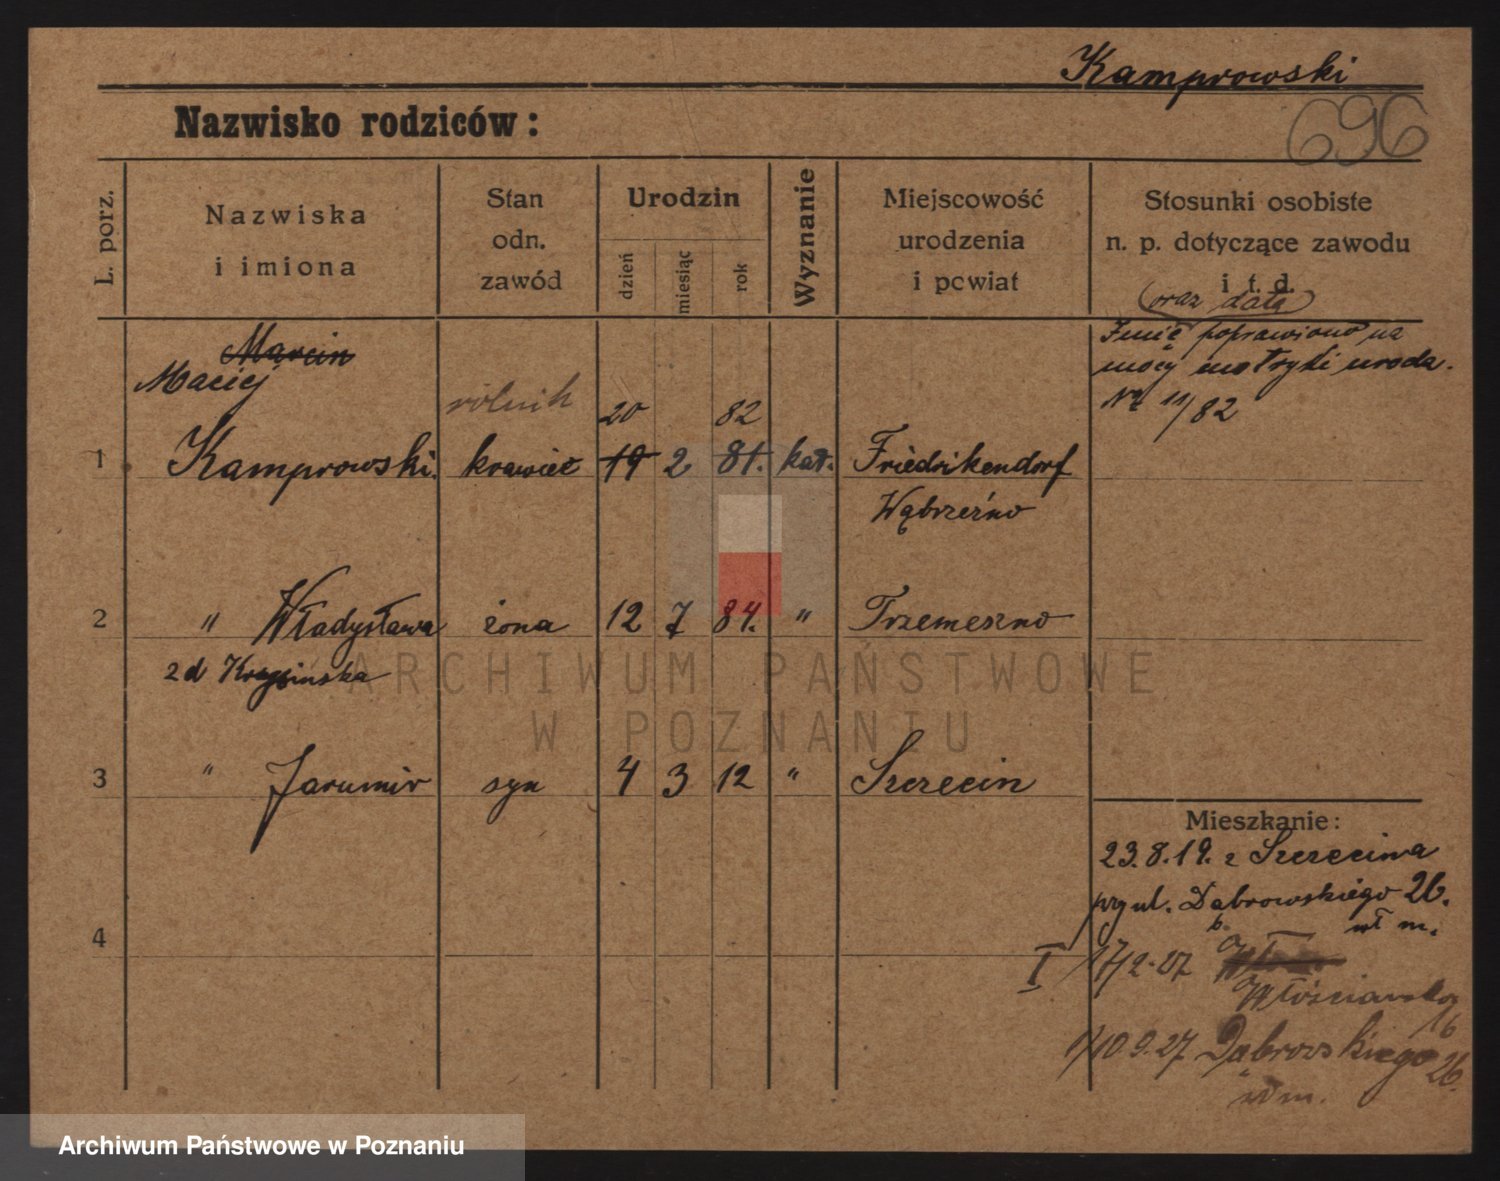 Kamprowski
696
Nazwisko rodziców:
L. porz.
Nazwiska
i imiona
Stan
odn.
zawód
Urodzin
dzień
miesiąc
rok
Wyznanie
Miejscowość
urodzenia
i powiat
Stosunki osobiste
n. p. dotyczące zawodu
i t. d.
(oraz data)
Imię poprawiono na
mocy metryki urodz.
Nr 11/82
Marcin
Maciej
rolnik
20 82
1 Kamprowski. krawiec 19 2 81. kat. Friedrikendorf
Wąbrzeźno
2 " Władysława żona 12 7 84. " Trzemeszno
zd
3 " Jarumir syn 4 3 12 " Szczecin
Mieszkanie:
23.8.19. z Szczecina
przy ul. Dąbrowskiego 26.
wł m.
4
I 17/2.27
16
10.9.27 Dąbrowskiego 26.
ARCHIWUM PAŃSTWOWE
W POZNANIU
Archiwum Państwowe w Poznaniu